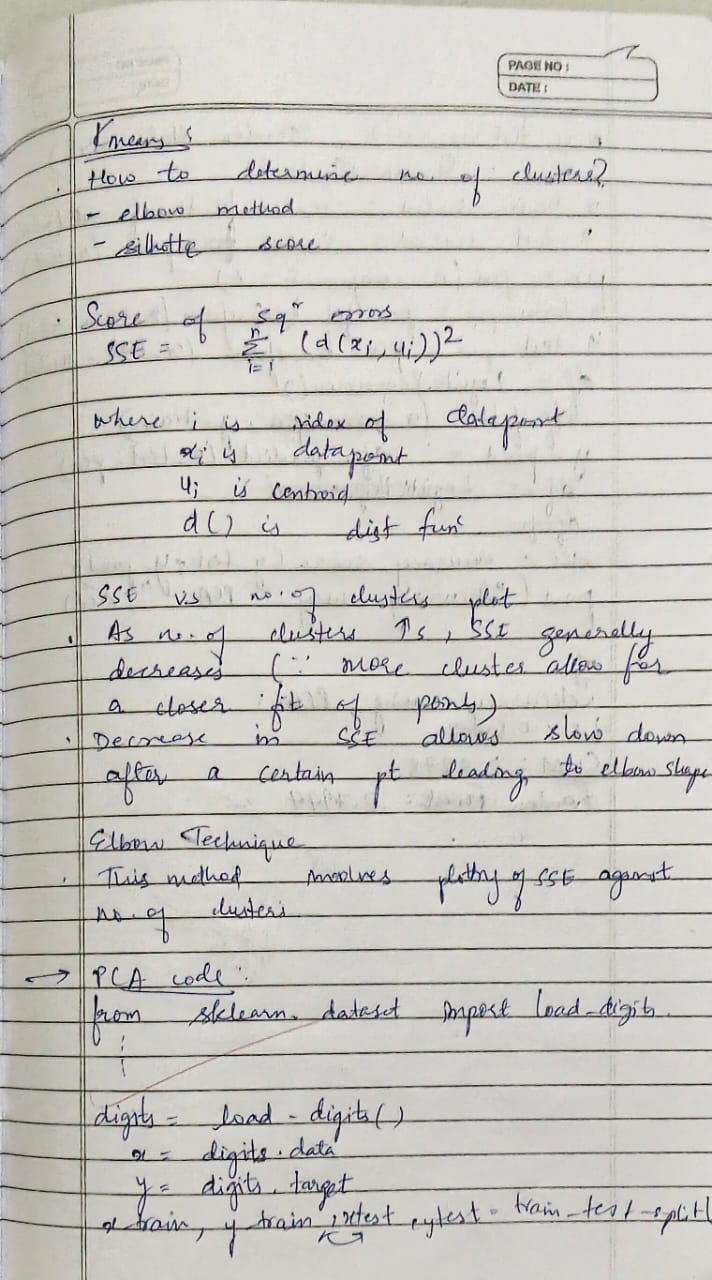 PAGE NO:
DATE:
Kmeans :
How to determine no. of clusters?
- elbow method
- silhotte score
Score of sqr errors
SSE = n Σ i=1 (d(xi, yi))2
where i is index of datapoint
xi is datapoint
yi is centroid
d() is dist func
SSE v.s no. of clusters plot
As no. of clusters ↑s, SSE generally
decreases (∵ more cluster allow for
a closer fit of points)
Decrease in SSE allows slow down
after a certain pt leading to elbow shape
Elbow Technique
This method involves plotting of SSE against
no. of clusters
→ PCA code :
from sklearn. dataset import load-digits
digits = load - digits()
x = digits. data
y = digits. target
x train, y train, xtest, ytest = train-test-split(